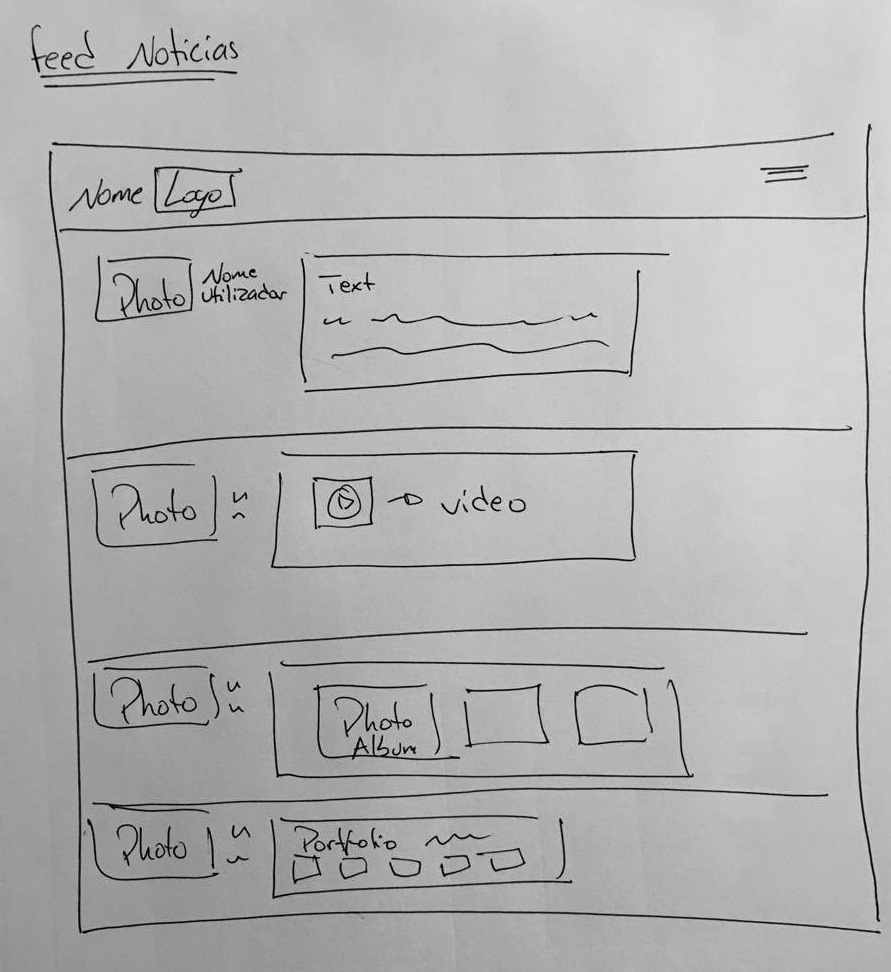 feed Noticias
Nome Logo
Photo
Nome
Utilizador
Text
Photo
video
Photo
Photo
Album
Photo
Portfolio